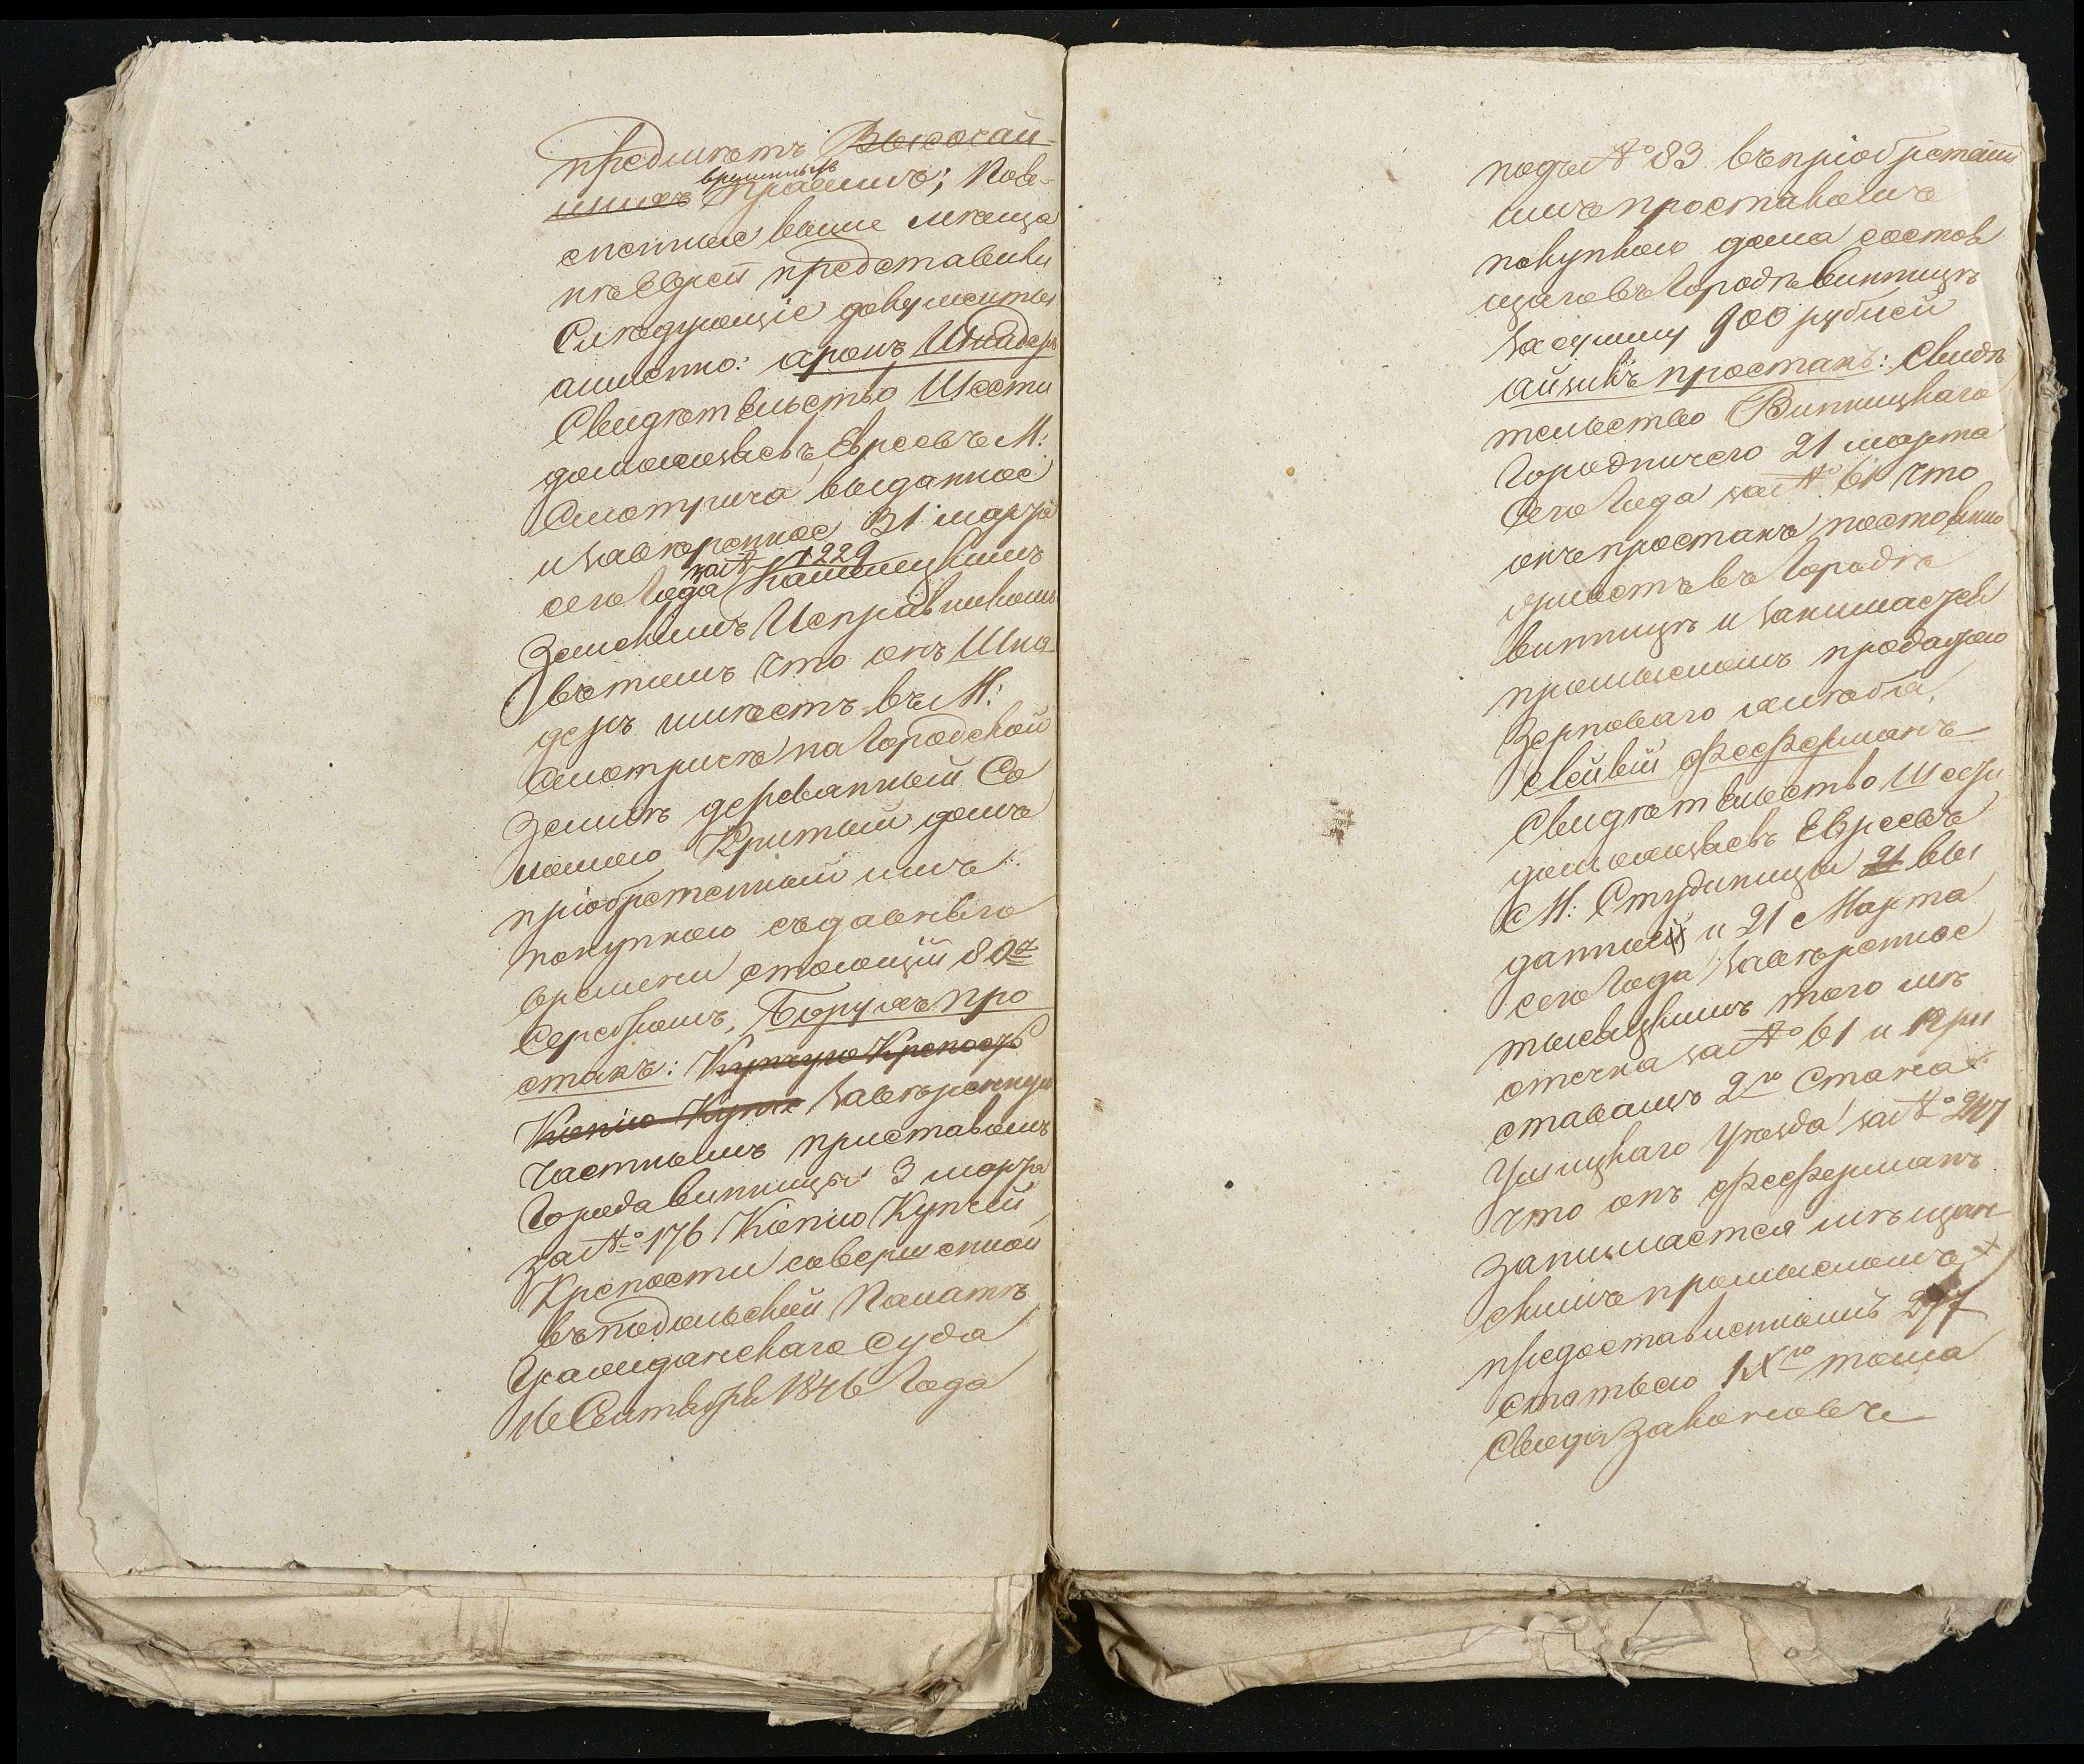 предметъ Высочай-
шихъ временныхъ правилъ; Пове-
сненные выше мѣща
не Евреи представили
Слѣдующіе документы
аименно: Аронъ Шнадеръ
Свидѣтельство Шести
домохозяевъ Евреевъ М:
Смотрича выданное
и завѣренное 31 марта
сего года за № 1229 Каменецкимъ
Земскимъ Исправникомъ
въ томъ что онъ Шна
деръ имѣетъ въ М:
Смотричѣ на Городской
Землѣ деревянный Со
ломою Критый домъ
пріобретенный имъ
покупкою съдавняго
времени стоющій 80 р
Серебромъ, Борухъ Про
стакъ: Купчую Крепость
Копію Купчей завѣренную
Частнымъ приставомъ
Города винницы 3 марта
за № 176 Копію Купчей
Крепости совершенной
въ Подольской Палатѣ
Гражданскаго Суда
16 Сентября 1846 Года
подъ № 83 въ пріобретеніи
имъ простакомъ
покупкою дома состоя
щаго въ Городѣ винницѣ
за сумму 900 рублей
Айзикъ простакъ: Свидѣ
тельство Винницкаго
Городничего 21 марта
Сего Года за № 61 что
онъ простакъ постоянно
живетъ въ Городѣ
винницѣ и занимается
промысломъ продажею
Зерноваго хлѣба,
Лейвій Фефферманъ
Свидѣтельство Шести
домохозяевъ Евреевъ
М: Студеницы 21 вы
данное и 21 Марта
сего Года завѣренное
тысяцкимъ того мѣ
стечка за № 61 и При
ставомъ 2го Стана
Ушицкаго Уѣзда за № 247
что онъ Фефферманъ
занимается мѣщан
скимъ промысломъ
предоставленнымъ 277
статьею IXго тома
Свода Законовъ